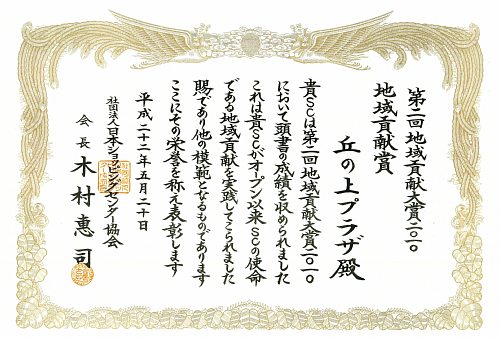 第二回地域貢献大賞二〇一〇
地域貢献賞
丘の上プラザ殿
貴SCは第二回地域貢献大賞二〇一〇
において頭書の成績を収められました
これは貴SCがオープン以来SCの使命
である地域貢献を実践してこられました
賜であり他の模範となるものであります
ここにその栄誉を称え表彰します
平成二十二年五月二十日
社団法人日本ショッピングセンター協会
会長木村惠司